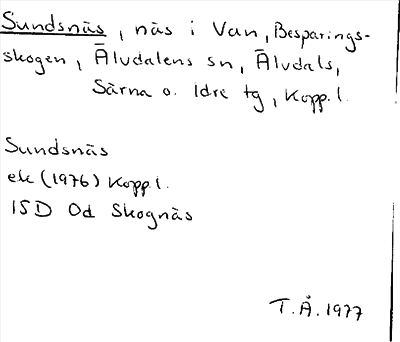 Sundsnäs, näs i Van, Besparings-
skogen, Älvdalens sn, Älvdals,
Särna o. Idre tg, Kopp. l.
Sundsnäs
ek (1976) Kopp. l.
15D 0d Skognäs
T.Å. 1977